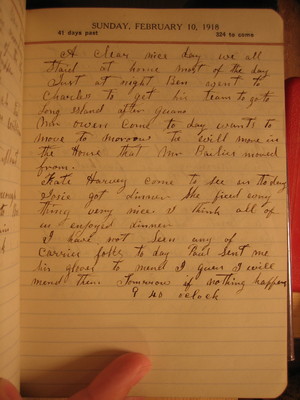 SUNDAY, FEBRUARY 10, 1918
41 days past 324 to come
A clear nice day we all
Staid at home most of the day
Just at night Ben went to
Charles to get his team to go to
Long Island after
Mr Owen Come to day wants to
move to morrow he will move in
the House that Mr moved
from.
Kate Harvey come to see us to day
got dinner She fixed every
thing very nice I think all of
us enjoyed dinner
I have not Seen any of
Carrier folks to day Paul Sent me
his gloves to mend I guess I will
mend them Tomorrow if nothing happens
9 40 oclock